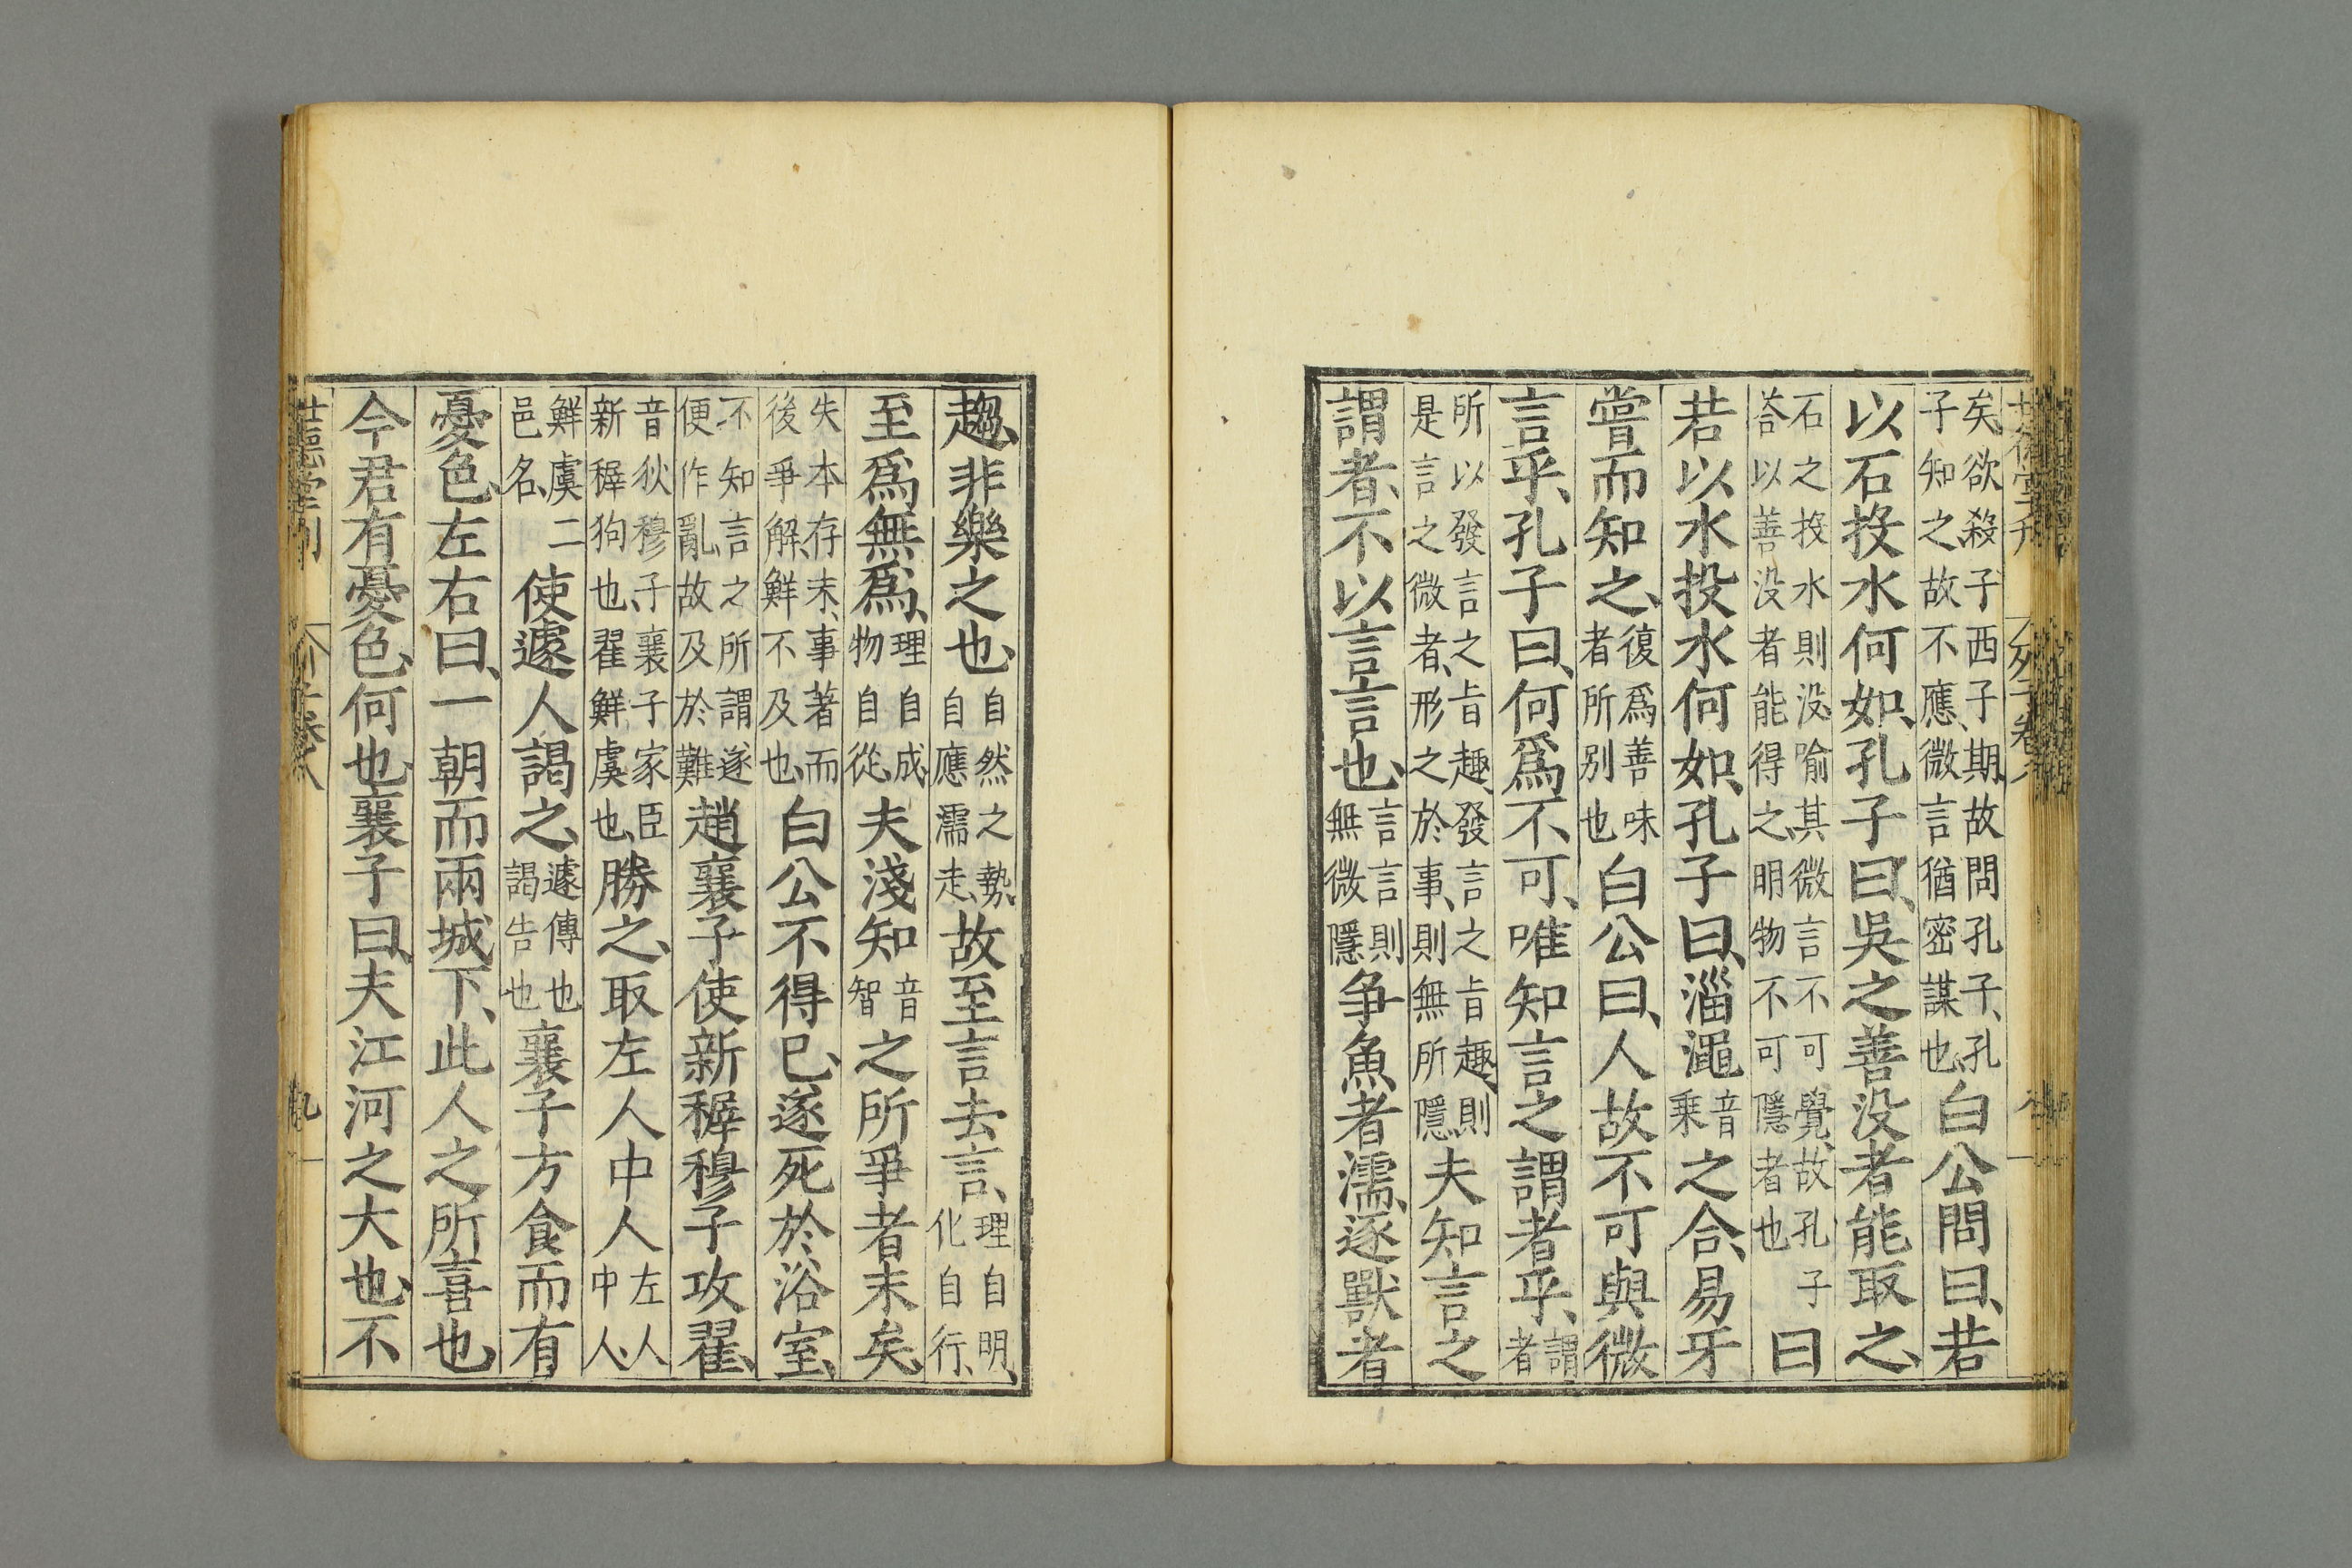 矣、欲殺子西子期、故問孔子、孔子知之故不應、微言猶密謀也、白公問曰、若
以石投水何如、孔子曰、吳之善没者能取之、
石之投水則没、喻其微言不可覺、故孔子荅以善没者能得之、明物不可隱者也曰
若以水投水何如、孔子曰、淄澠音乗之合、易牙
嘗而知之、復爲善味者所别也白公曰、人故不可與微
言乎、孔子曰、何爲不可、唯知言之謂者乎、謂者
所以發言之旨趣、發言之旨趣、則是言之微者、形之於事、則無所隱夫知言之
謂者、不以言言也、言言則無微隱爭魚者濡、逐獸者
列子卷八
趨、非樂之也、自然之勢、自應濡走、故至言去言、理自明、化自行、
至爲無爲、理自成物自從、夫淺知音智之所爭者末矣、
失本存末、事著而後爭解、鮮不及也、白公不得已、遂死於浴室、
不知言之所謂遂便作亂、故及於難趙襄子使新穉穆子攻翟、
音狄穆子、襄子家臣新穉狗也、翟鮮虞也、勝之、取左人中人左人中人、
鮮虞二邑名、使遽人謁之、遽傳也謁告也襄子方食而有
憂色、左右曰、一朝而兩城下、此人之所喜也、
今君有憂色、何也、襄子曰、夫江河之大也、不
世德堂刊
列子卷八
九